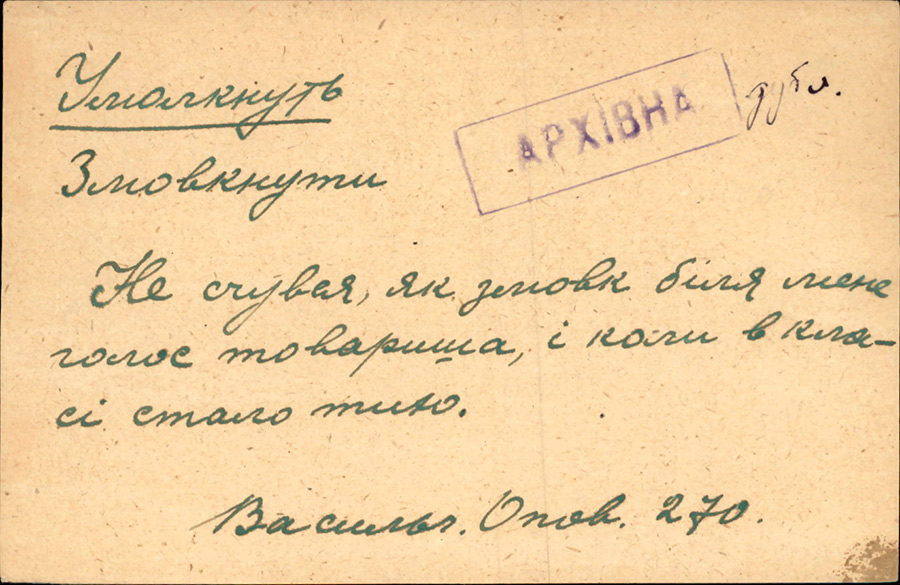 Умолкнуть
АРХІВНА дубл.
Змовкнути
Не счувся, як змовк біля мене
голос товариша, і коли в кла-
сі стало тихо.
Васильч. Опов. 270.